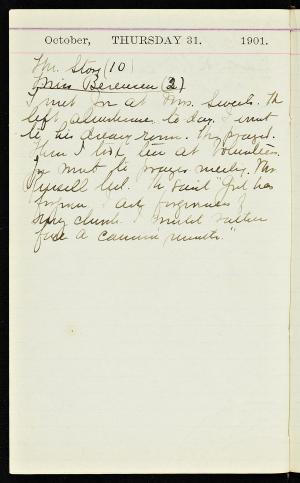 October, THURSDAY 31. 1901.
Mr. Story (10)
Miss Berenson (2)
I met Jn at Mrs. Sewels. He
left to day. I went
to his dressing room. We prayed.
Then I took tea at Volunteers.
Jn went to prayer meeting. Mr
led. He said "God has
forgiven, I ask forgiveness of
my church. I would rather
face a cannon's mouth."